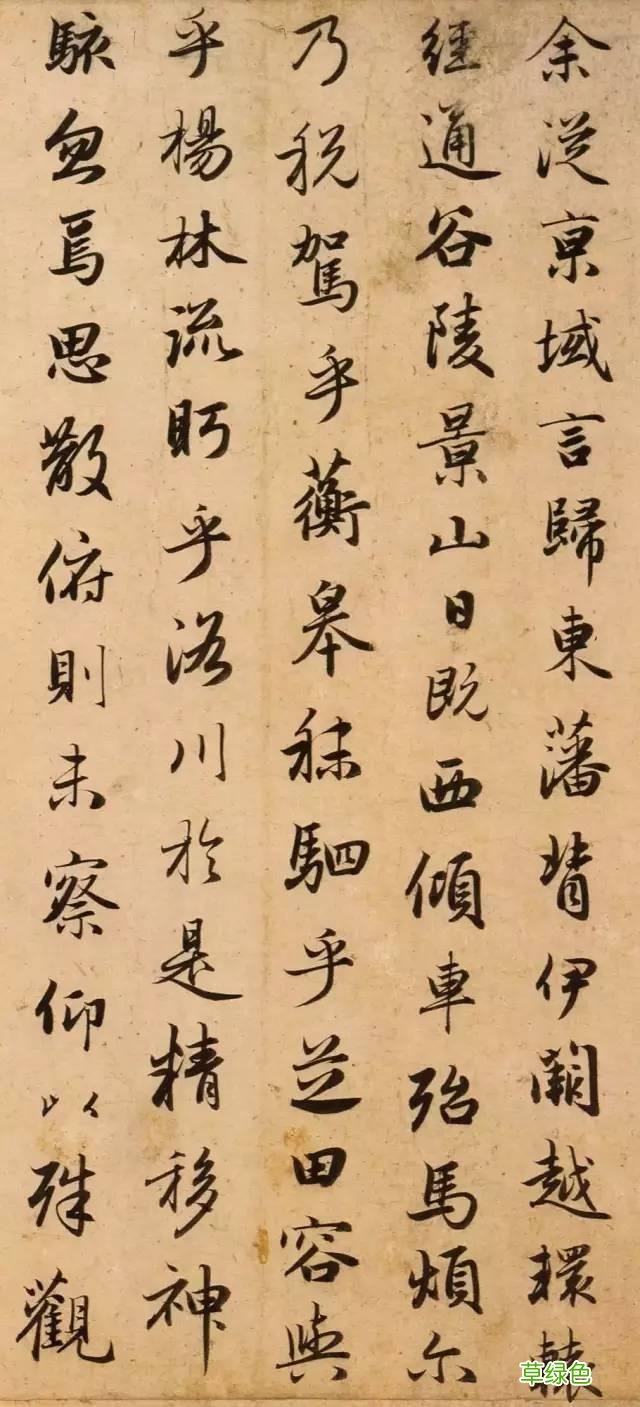 余從京域言歸東藩背伊闕越轘轅
經通谷陵景山日既西傾車殆馬煩尔
乃稅駕乎蘅皋秣駟乎芝田容與
乎楊林流眄乎洛川於是精移神
駭忽焉思散俯則未察仰以殊觀
草绿色